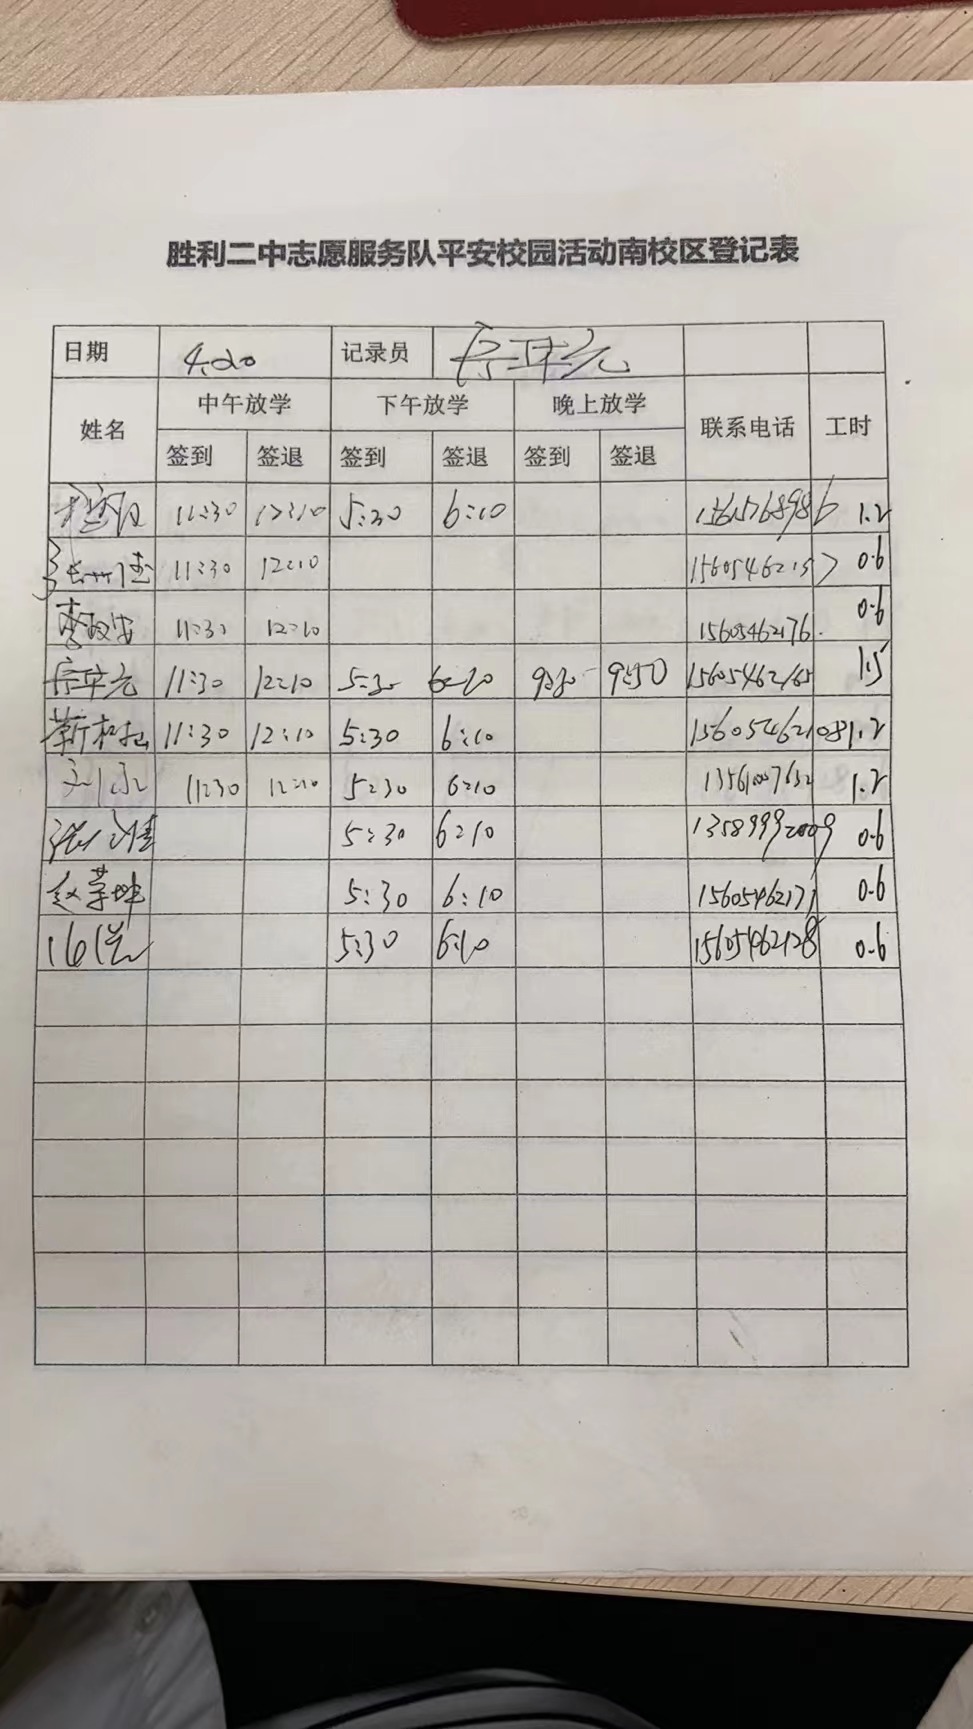 胜利二中志愿服务队平安校园活动南校区登记表
日期 4.20 记录员
姓名 中午放学 下午放学 晚上放学 联系电话 工时
签到 签退 签到 签退 签到 签退
11:30 12:10 5:30 6:10 15615768986 1.2
11:30 12:10 0.6
11:30 12:10 15605462176. 0.6
11:30 12:10 5:30 6:10 9:30 9:50 15605462165 1.5
11:30 12:10 5:30 6:10 15605462108 1.2
11:30 12:10 5:30 6:10 13561007632 1.2
5:30 6:10 13589992009 0.6
赵 5:30 6:10 15605462171 0.6
5:30 6:10 15605462128 0.6